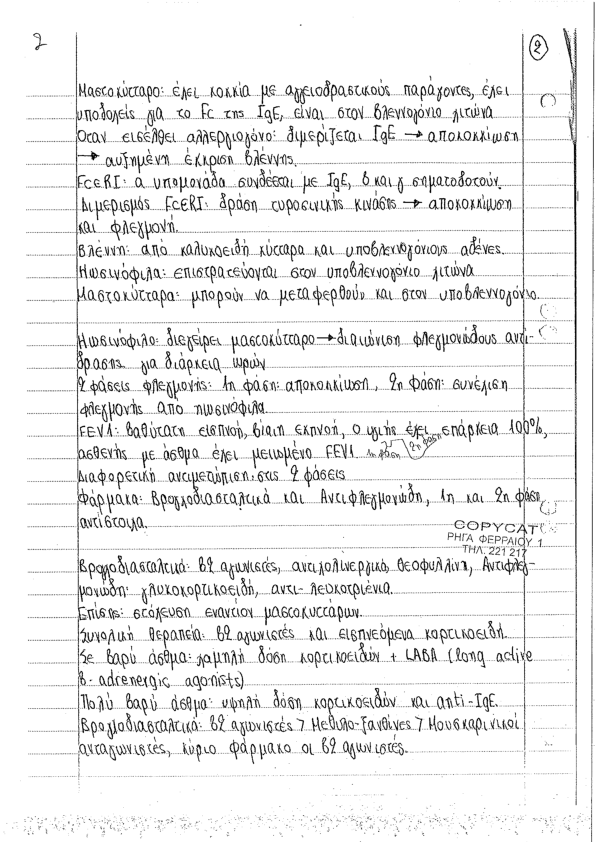 2
2
Μαστοκύτταρο: έχει κοκκία με αγγειοδραστικούς παράγοντες, έχει
υποδοχείς για το Fc της IgE, είναι στον βλεννογόνιο χιτώνα
Όταν εισέλθει αλλεργιογόνο: διμερίζεται IgE → αποκοκκίωση
→ αυξημένη έκκριση βλέννης.
FcεRI: α υπομονάδα συνδέεται με IgE, β και γ σηματοδοτούν.
Διμερισμός FcεRI: δράση τυροσινικής κινάσης → αποκοκκίωση
και φλεγμονή.
Βλέννη: από καλυκοειδή κύτταρα και υποβλεννογόνιους αδένες.
Ηωσινόφιλα: επιστρατεύονται στον υποβλεννογόνιο χιτώνα
Μαστοκύτταρα: μπορούν να μεταφερθούν και στον υποβλεννογόνιο.
Ηωσινόφιλο: διεγείρει μαστοκύτταρο → διαιώνιση φλεγμονώδους αντί-
δρασης για διάρκεια ωρών
2 φάσεις φλεγμονής: 1η φάση: αποκοκκίωση, 2η φάση: συνέχιση
φλεγμονής από ηωσινόφιλα.
FEV1: βαθύτατη εισπνοή, βίαιη εκπνοή, ο υγιής έχει επάρκεια 100%,
ασθενής με άσθμα έχει μειωμένο FEV1 1η φάση 2η φάση
Διαφορετική αντιμετώπιση στις 2 φάσεις
Φάρμακα: Βρογχοδιασταλτικά και Αντιφλεγμονώδη, 1η και 2η φάση
αντίστοιχα.
COPYCAT
ΡΗΓΑ ΦΕΡΡΑΙΟΥ 1
ΤΗΛ. 221 217
Βρογχοδιασταλτικά: β2 αγωνιστές, αντιχολινεργικά, θεοφυλλίνη, Αντιφλεγ-
μονώδη: γλυκοκορτικοειδή, αντι-λευκοτριένια.
Επίσης: στόχευση εναντίον μαστοκυττάρων.
Συνολική θεραπεία: β2 αγωνιστές και εισπνεόμενα κορτικοειδή.
Σε βαρύ άσθμα: χαμηλή δόση κορτικοειδών + LABA (long active
β-adrenergic agonists)
Πολύ βαρύ άσθμα: υψηλή δόση κορτικοειδών και anti-IgE.
Βρογχοδιασταλτικά: β2 αγωνιστές > Μεθυλο-ξανθίνες > Μουσκαρινικοί
ανταγωνιστές, κύριο φάρμακο οι β2 αγωνιστές.